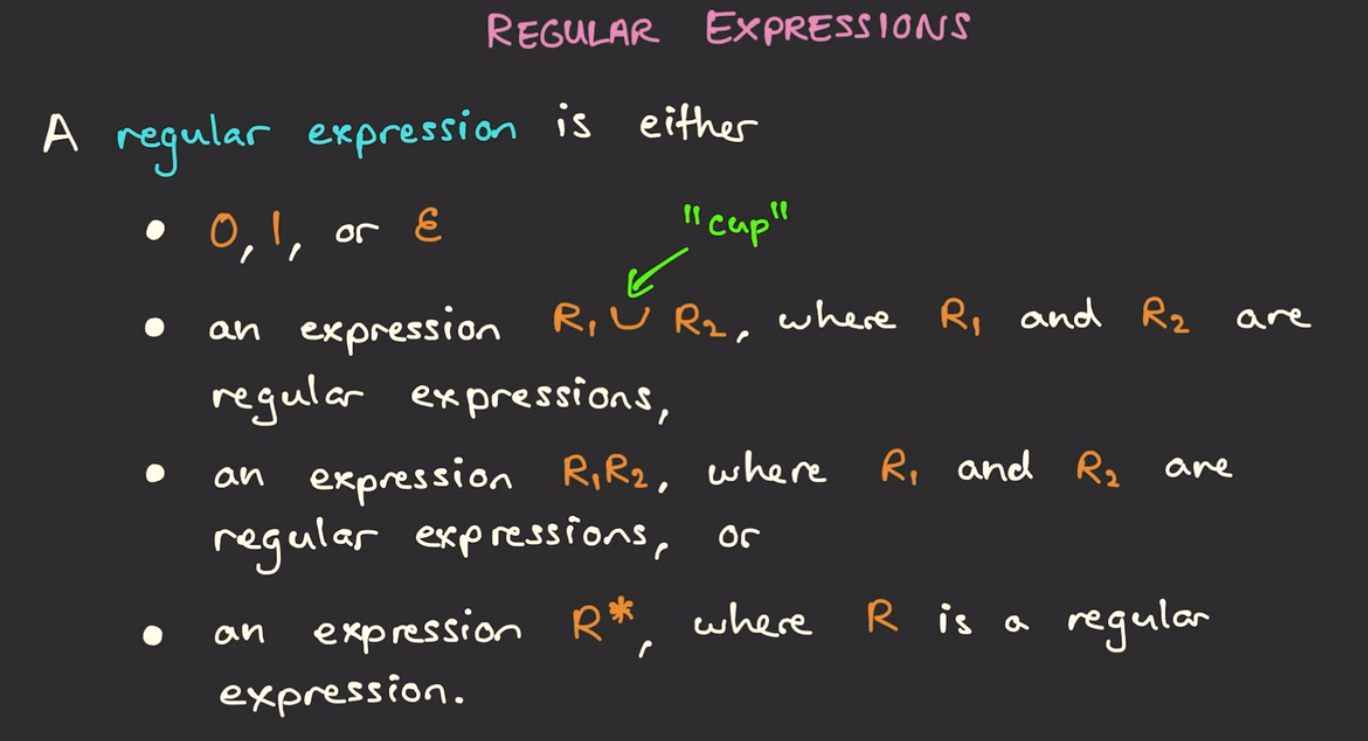 REGULAR EXPRESSIONS
A regular expression is either
• 0, 1, or ε
"cup"
• an expression R₁ ∪ R₂, where R₁ and R₂ are
regular expressions,
• an expression R₁R₂, where R₁ and R₂ are
regular expressions, or
• an expression R*, where R is a regular
expression.